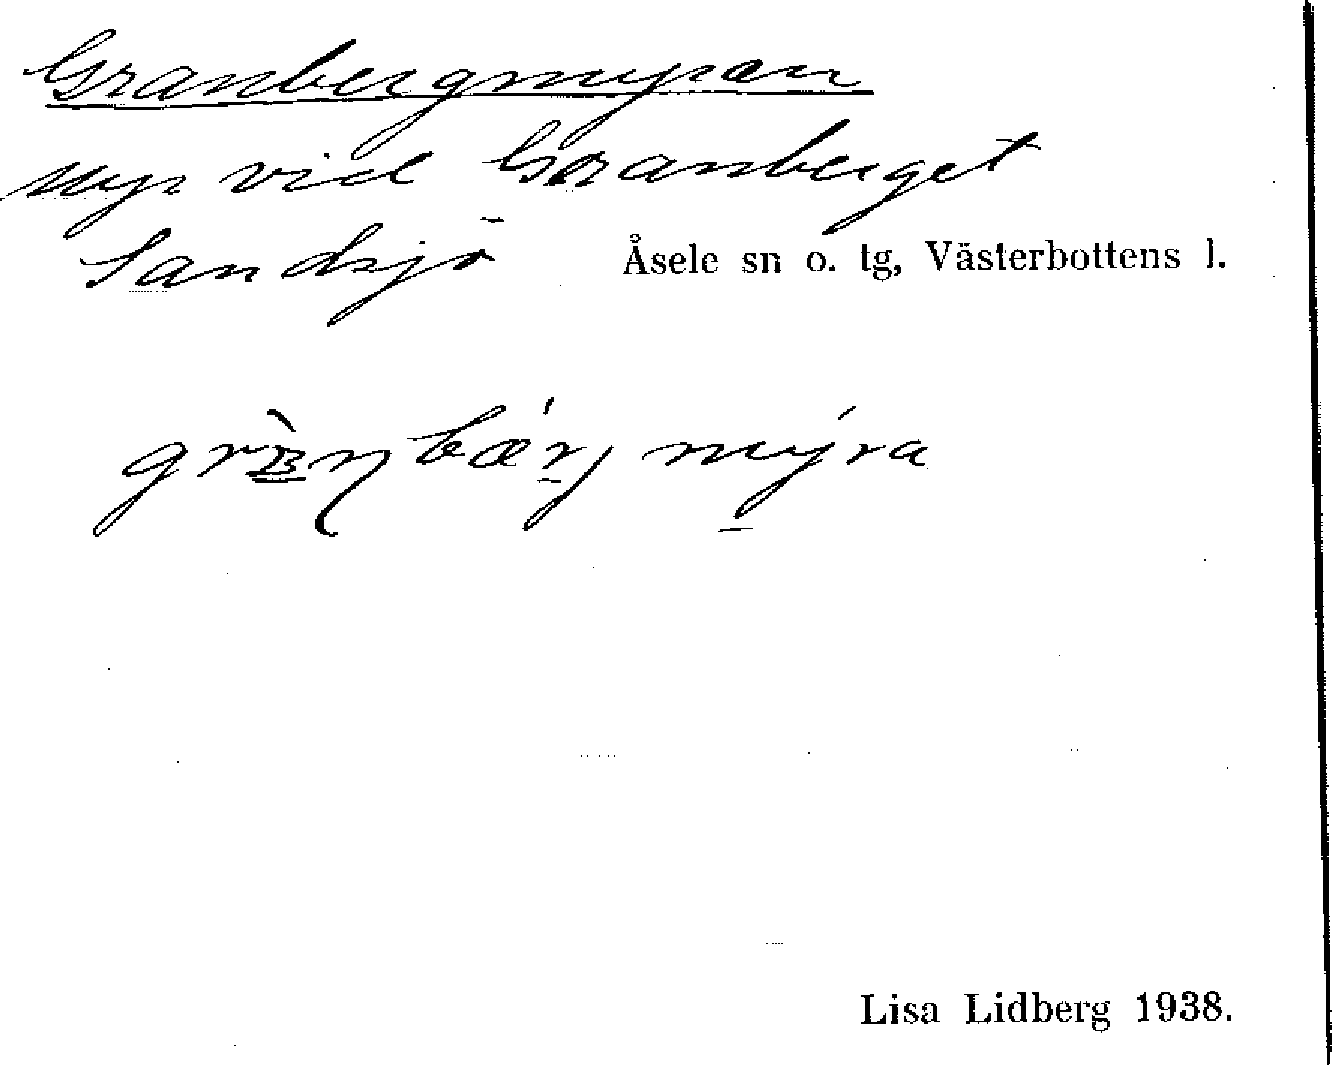 Granbergmyran
myr vid Granberget
Sandsjö Åsele sn o. tg, Västerbottens l.
mýra
Lisa Lidberg 1938.